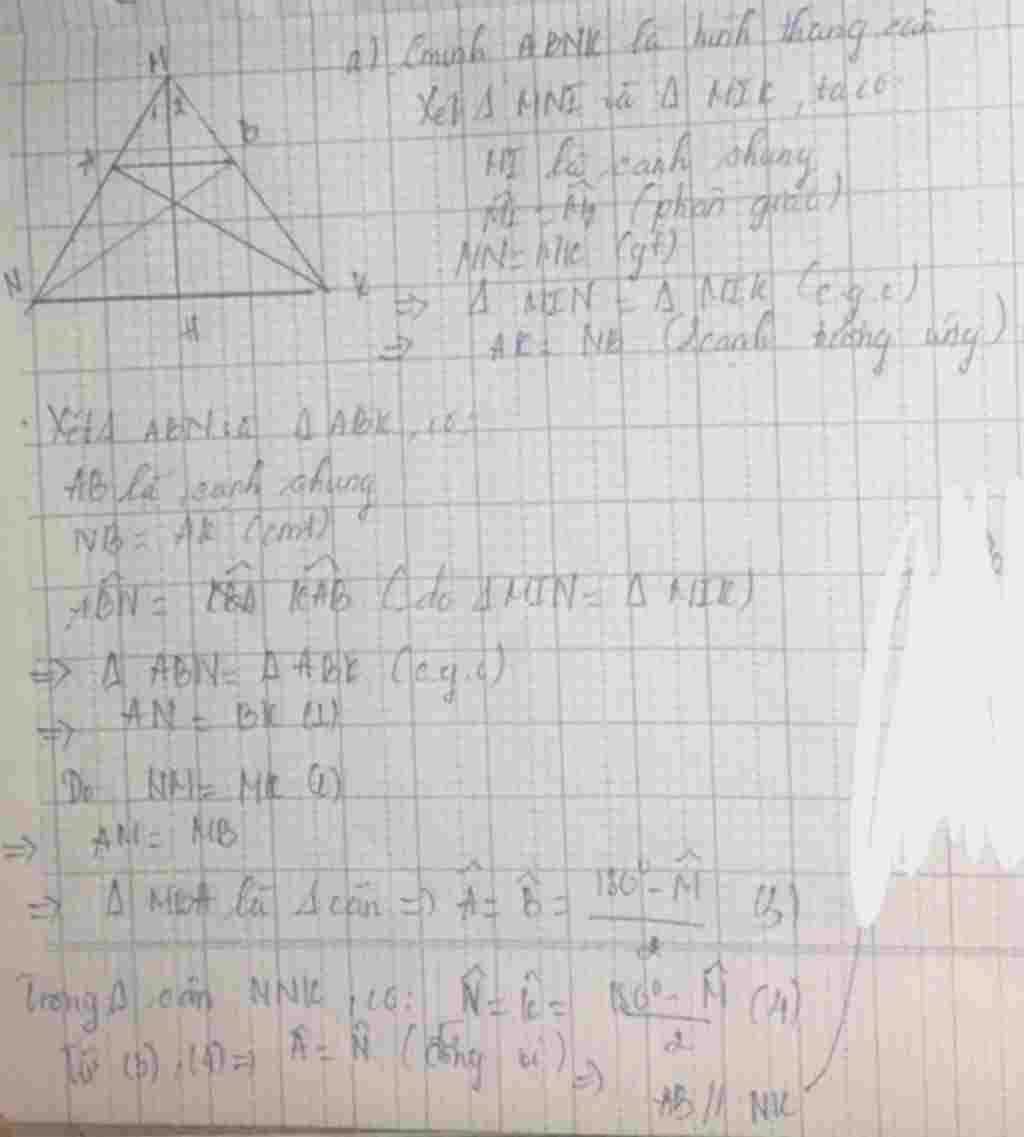 a) Cminh ABNK là hình thang cân
Xét Δ MNI và Δ MIK, ta có:
MI là cạnh chung
M̂1 = M̂2 (phân giác)
MN = MK (gt)
=> Δ MIN = Δ MIK (c.g.c)
=> AK = NB (2 cạnh tương ứng)
M
1 2
A
B
N
K
H
Xét Δ ABN và Δ ABK, có:
AB là cạnh chung
NB = AK (cmt)
AB̂N = KÂB (do Δ MIN = Δ MIK)
=> Δ ABN = Δ ABK (c.g.c)
=> AN = BK (1)
Do NM = MK (2)
=> AM = MB
=> Δ MBA là Δ cân => Â = B̂ = (180° - M̂)/2 (3)
Trong Δ cân MNK, có: N̂ = K̂ = (180° - M̂)/2 (4)
Từ (3), (4) => Â = N̂ (đồng vị) =>
AB // NK